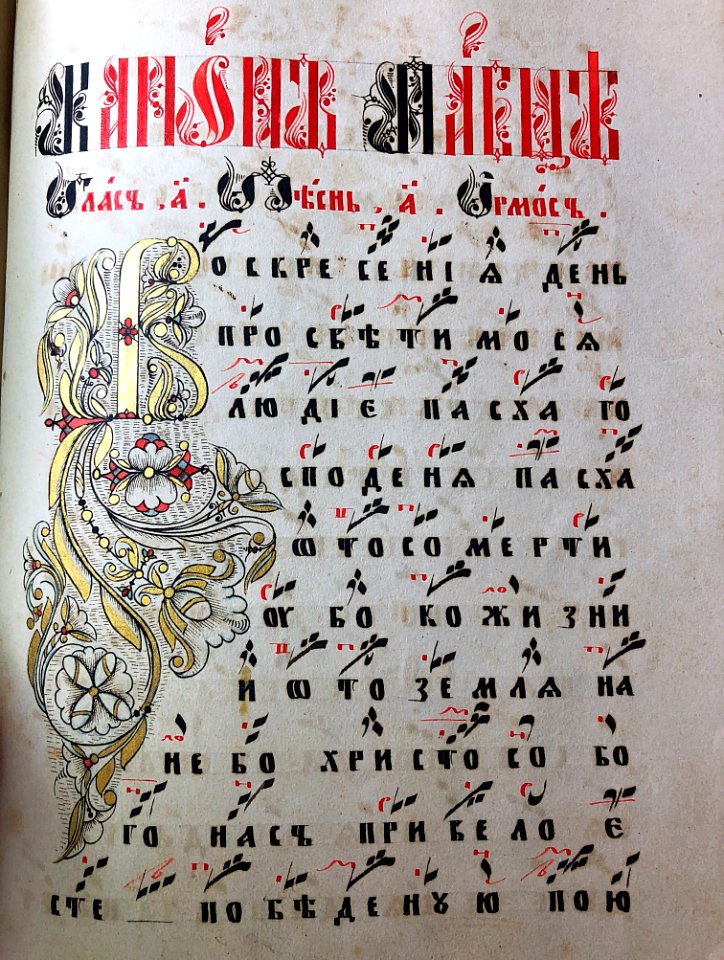 Канѡнъ Пасцѣ
Гла́съ , а҃ . Пѣ́снь , а҃ . Ірмо́съ .
Воскресенія день
просвѣтимося
людіе пасха го
споденя пасха
ѡтосомерти
оубо кожизни
и ѡто земля на
небо христосо бо
го насъ привело е
сте побѣденую пою